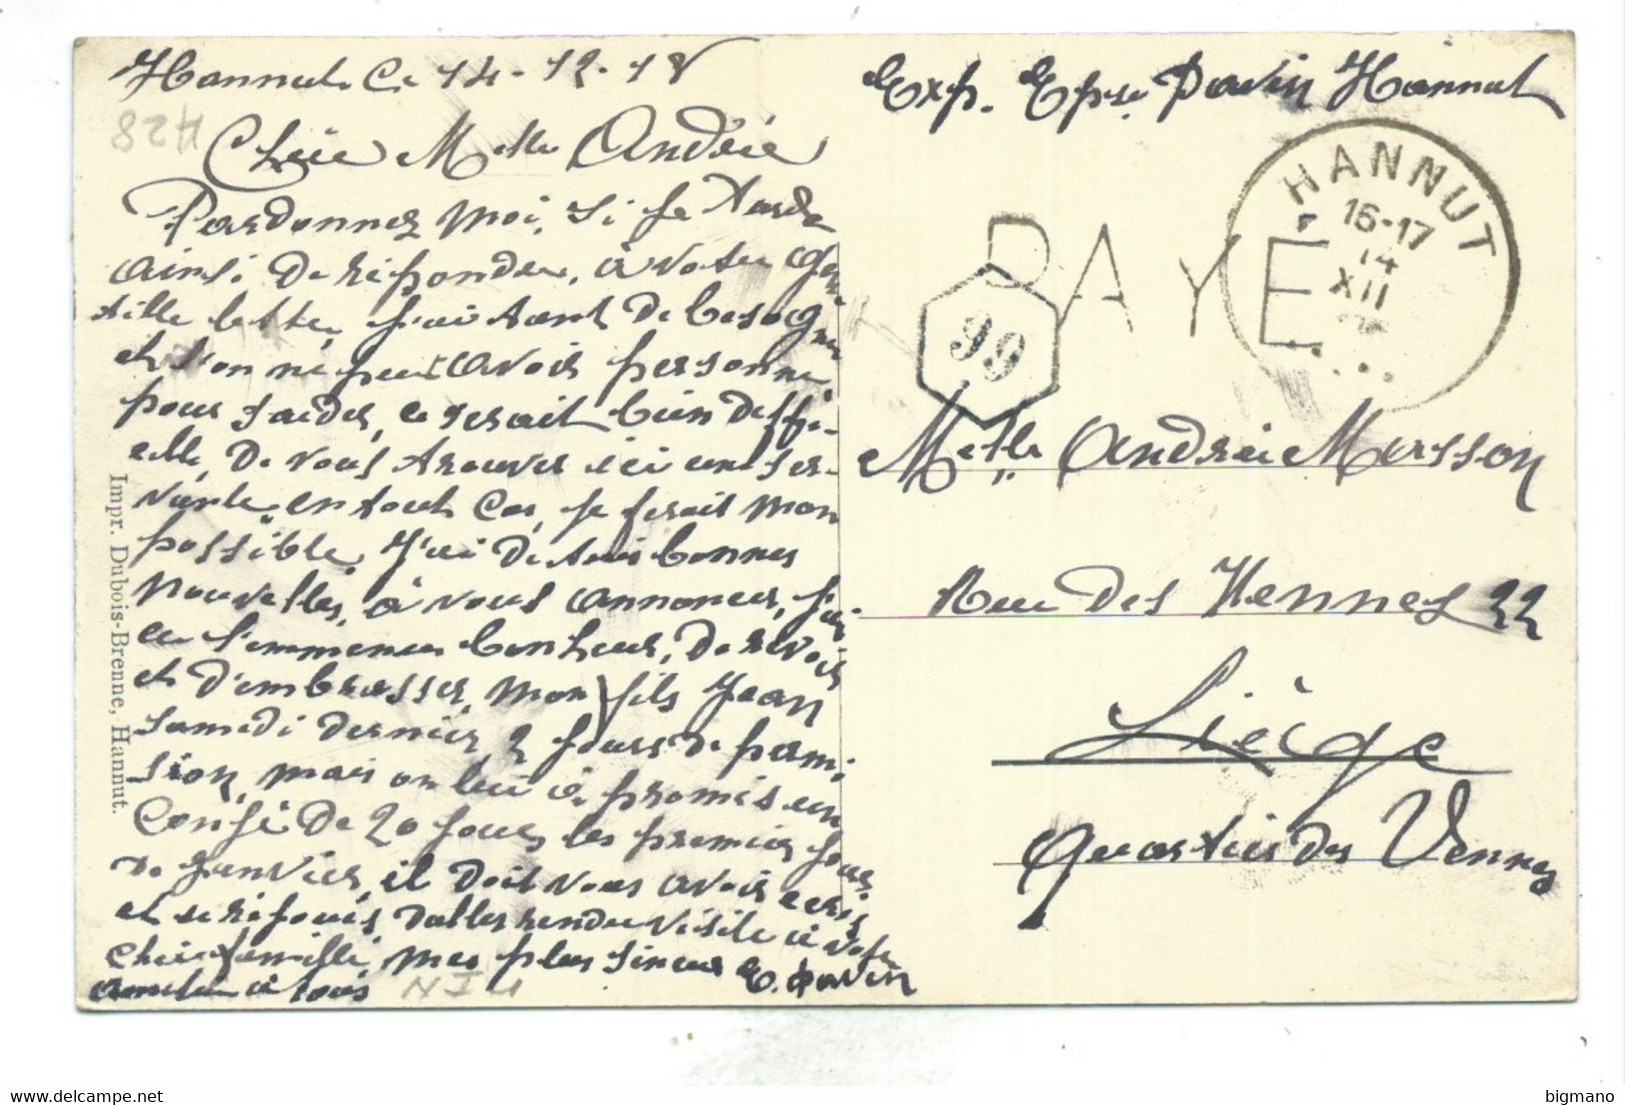 Hannut Ce 14-12-18
A28
Chère Melle Andrée
Pardonnez moi, si je tarde
ainsi de répondre, à votre gen
tille lettre, j'ai tant de besogne
et l'on ne peut avoir personne,
pour s'aider, ce serait bien diffi-
cille, de vous trouver ici une ser-
vante, en tout cas, je ferait mon
possible. J'ai de très bonnes
nouvelles, à vous annoncer, j'ai
eu l'immence bonheur, de revoir
et d'embrasser, mon fils Jean
samedi dernier 2 jours de permi
sion, mais on lui à promis un
Congé de 20 jours, les premier jours
de janvier, il doit vous avoir écris
et se réjouis, d'alles rendre visite à votre
chère famille, mes plus sincere E. Davin
amitié à tous
Impr. Dubois-Brenne, Hannut.
Exp. Epse Davin Hannut
HANNUT
16-17
14
XII
PAYÉ
99
Melle Andrée Masson
Rue des Vennes 22
Liège
Quartier des Vennes
bigmano